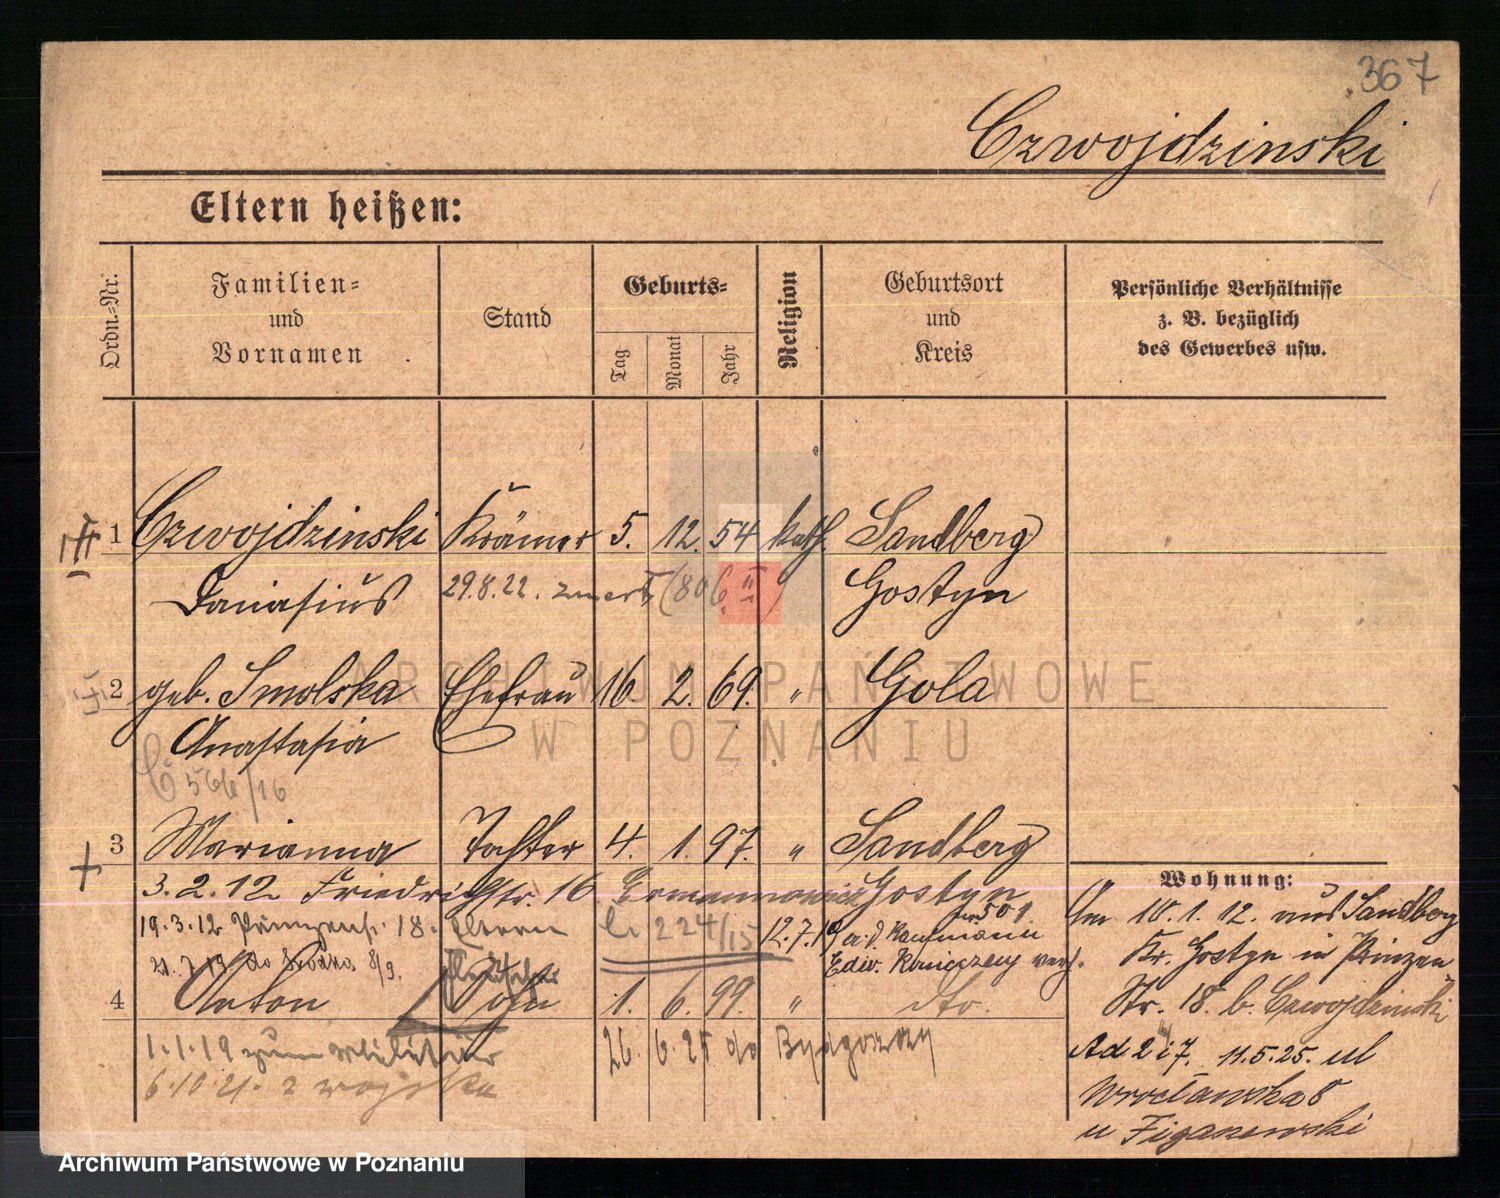 367
Czwojdzinski
Eltern heißen:
Ordn.-Nr.
Familien-
und
Vornamen
Stand
Geburts-
Tag
Monat
Jahr
Religion
Geburtsort
und
Kreis
Persönliche Verhältnisse
z. B. bezüglich
des Gewerbes usw.
1 Czwojdzinski Krämer 5. 12. 54 kath. Sandberg
29.8.22. zmarł (806 II) Gostyn
2 geb. Smolska Ehefrau 16 2. 69. " Gola
Anastasia
566/16
3 Marianna Tochter 4. 1. 97. " Sandberg
3.2.12 Friedrichstr. 16 Gostyn
19.3.12 Prinzenstr. 18. Eltern 224/15 12.7.19 a. d. Kaufmann
4 Anton Sohn 1. 6. 99. " dto.
1.1.19 zum Militär 26. 6. 25 do Bydgoszczy
6.10.21. z wojska
Wohnung:
Am 10.1.12. aus Sandberg
Kr. Gostyn in Prinzen
Str. 18. b. Czwojdzinski
Ad 2 i 7. 11.5.25. ul
Wrocławska 8
u Figaszewski
ARCHIWUM PAŃSTWOWE
W POZNANIU
Archiwum Państwowe w Poznaniu